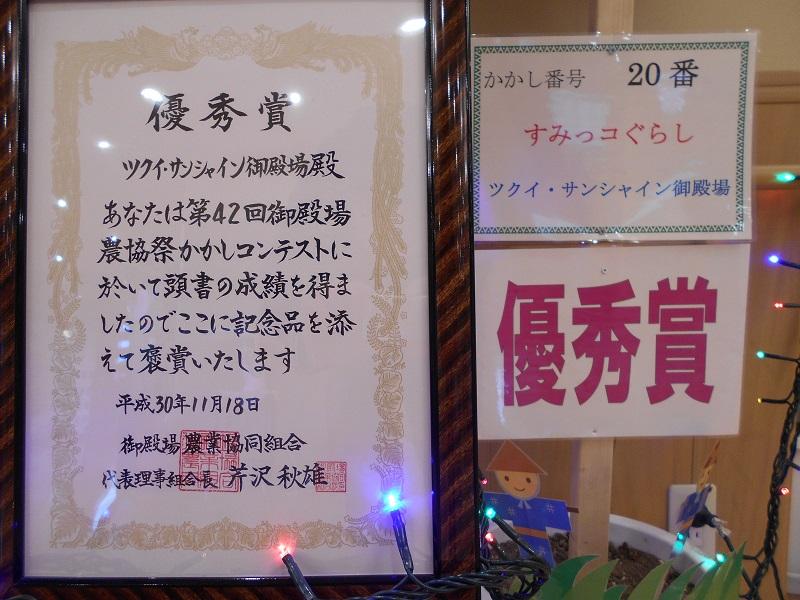 優秀賞
ツクイ・サンシャイン御殿場殿
あなたは第42回御殿場
農協祭かかしコンテストに
於いて頭書の成績を得ま
したのでここに記念品を添
えて褒賞いたします
平成30年11月18日
御殿場農業協同組合
代表理事組合長 芹沢秋雄
かかし番号 20番
すみっコぐらし
ツクイ・サンシャイン御殿場
優秀賞